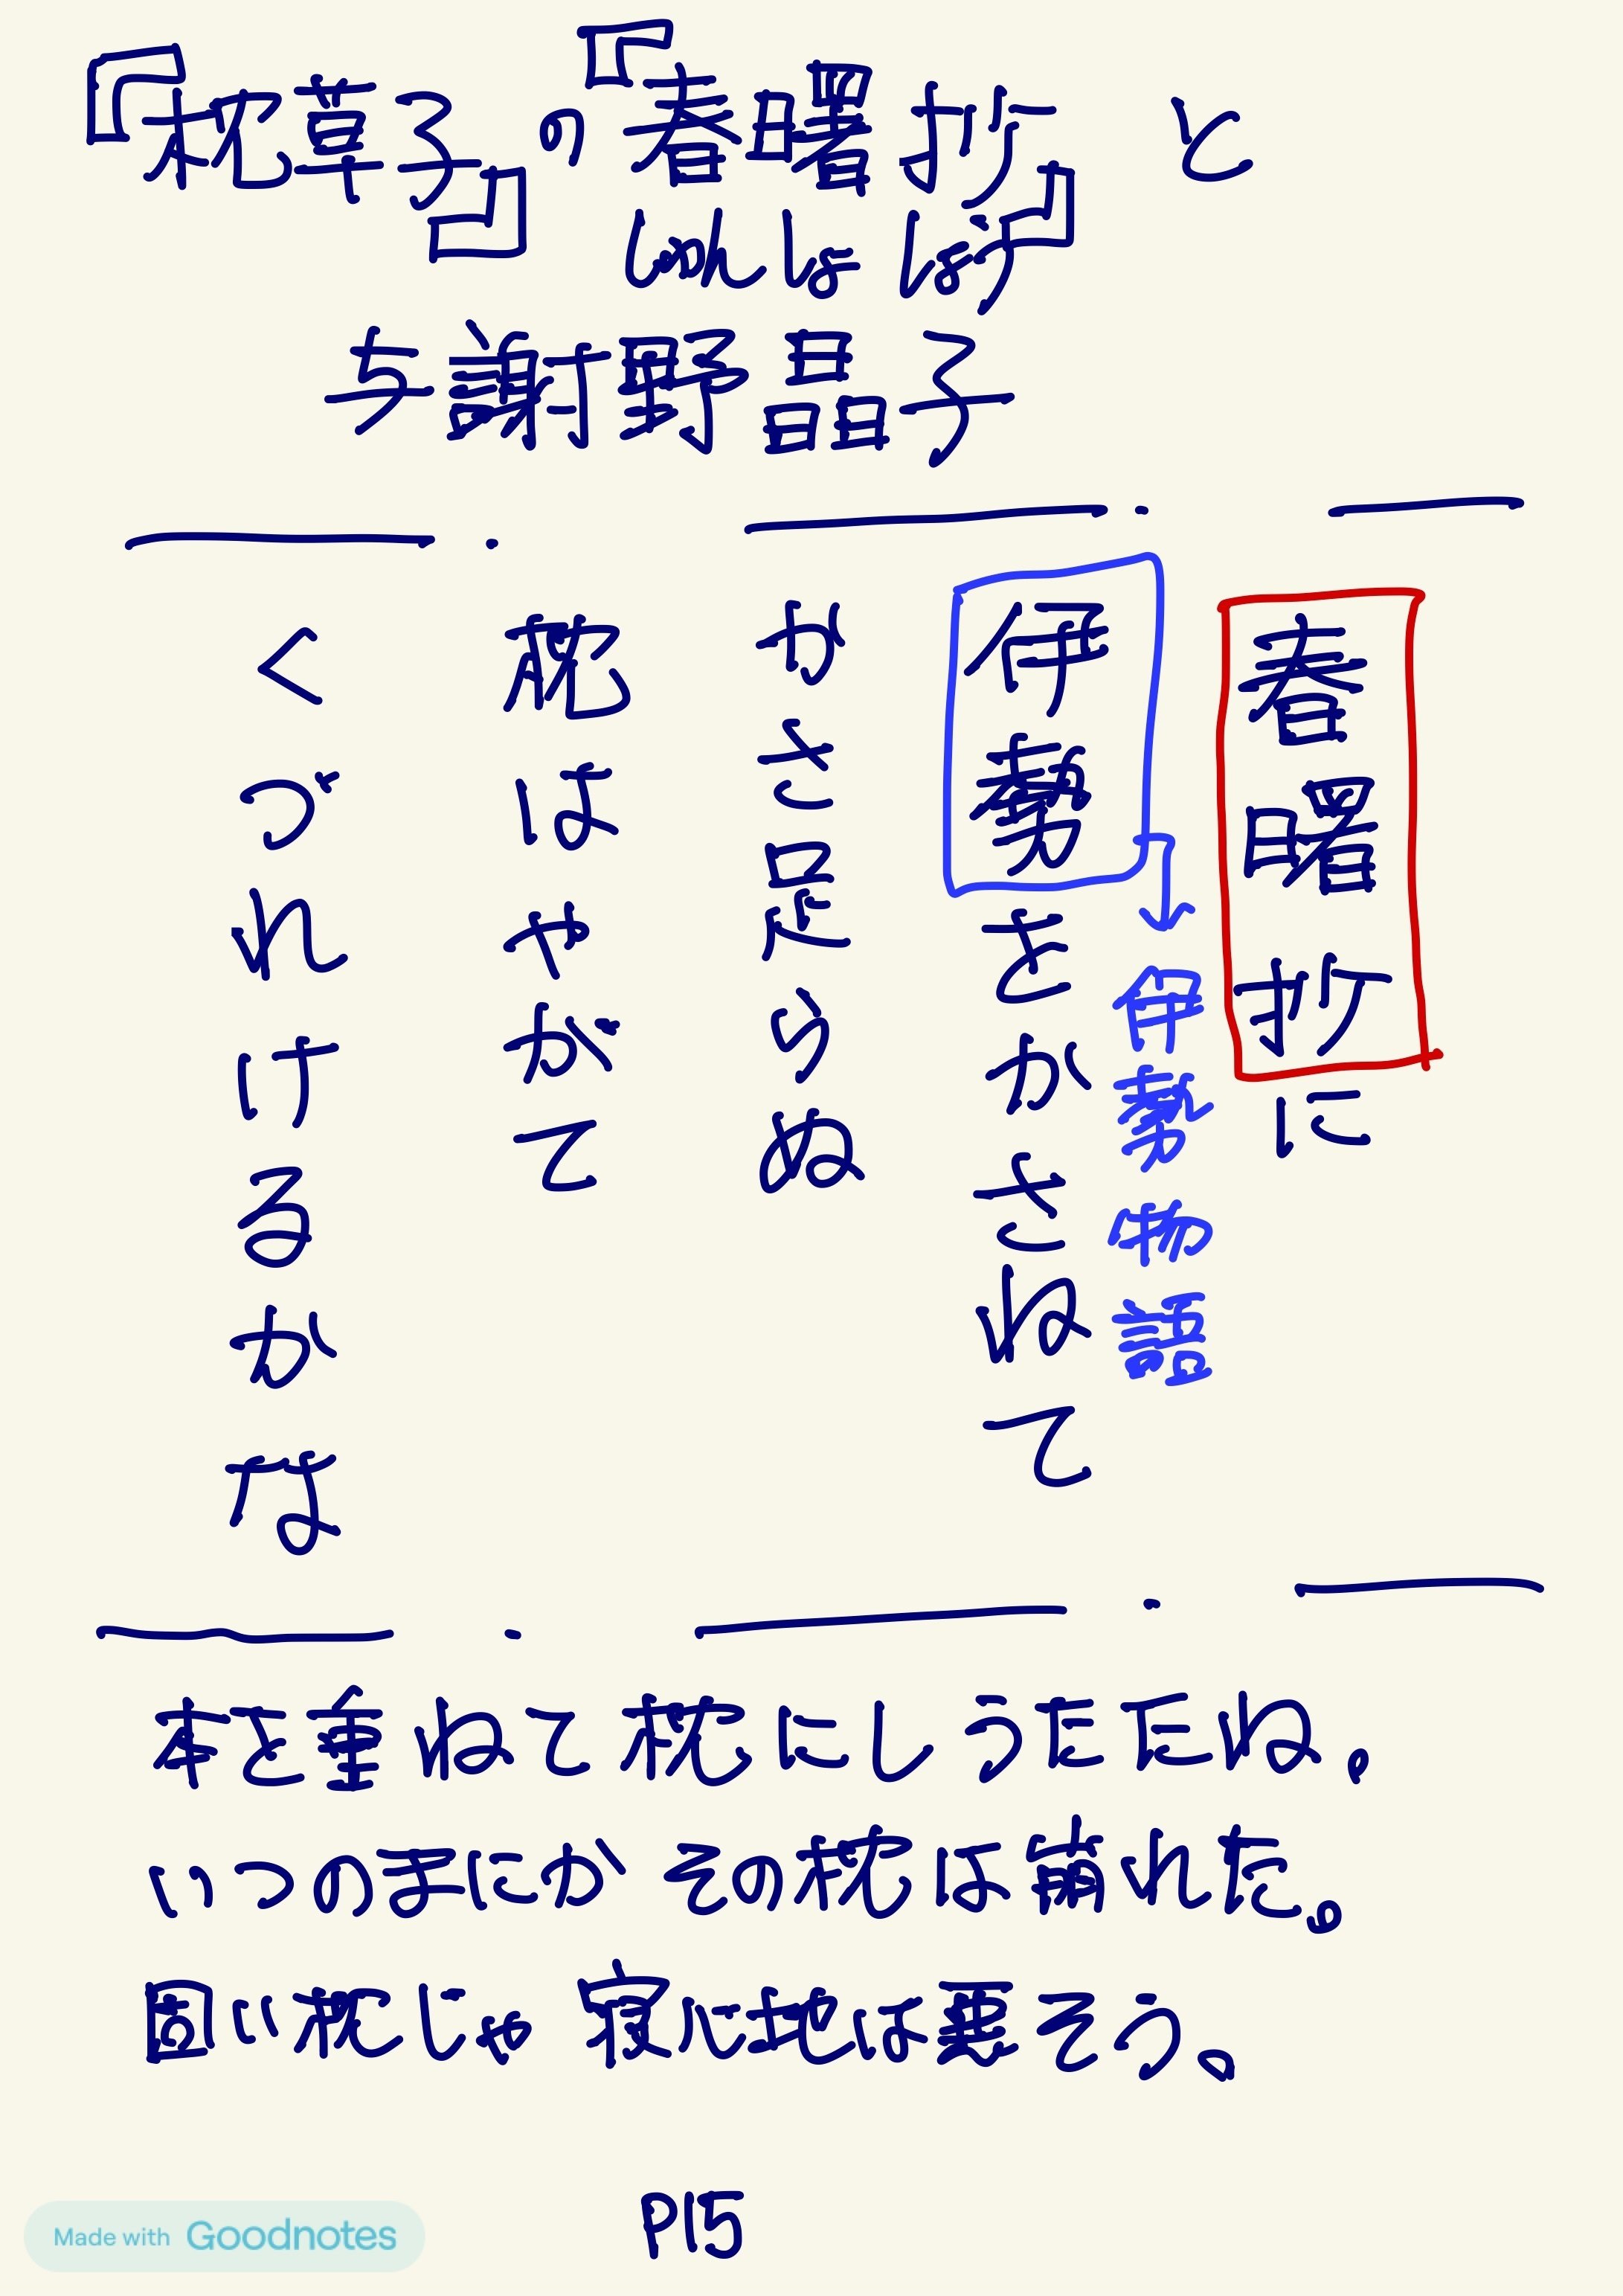 『枕草子』の『春曙抄』と
しゅんしょしょう
与謝野晶子
春曙抄に
伊勢をかさねて
→伊勢物語
かさ足らぬ
枕はやがて
くづれけるかな
本を重ねて枕にしうたたね。
いつのまにかその枕は崩れた。
固い枕じゃ寝心地は悪そう。
P15
Made with Goodnotes